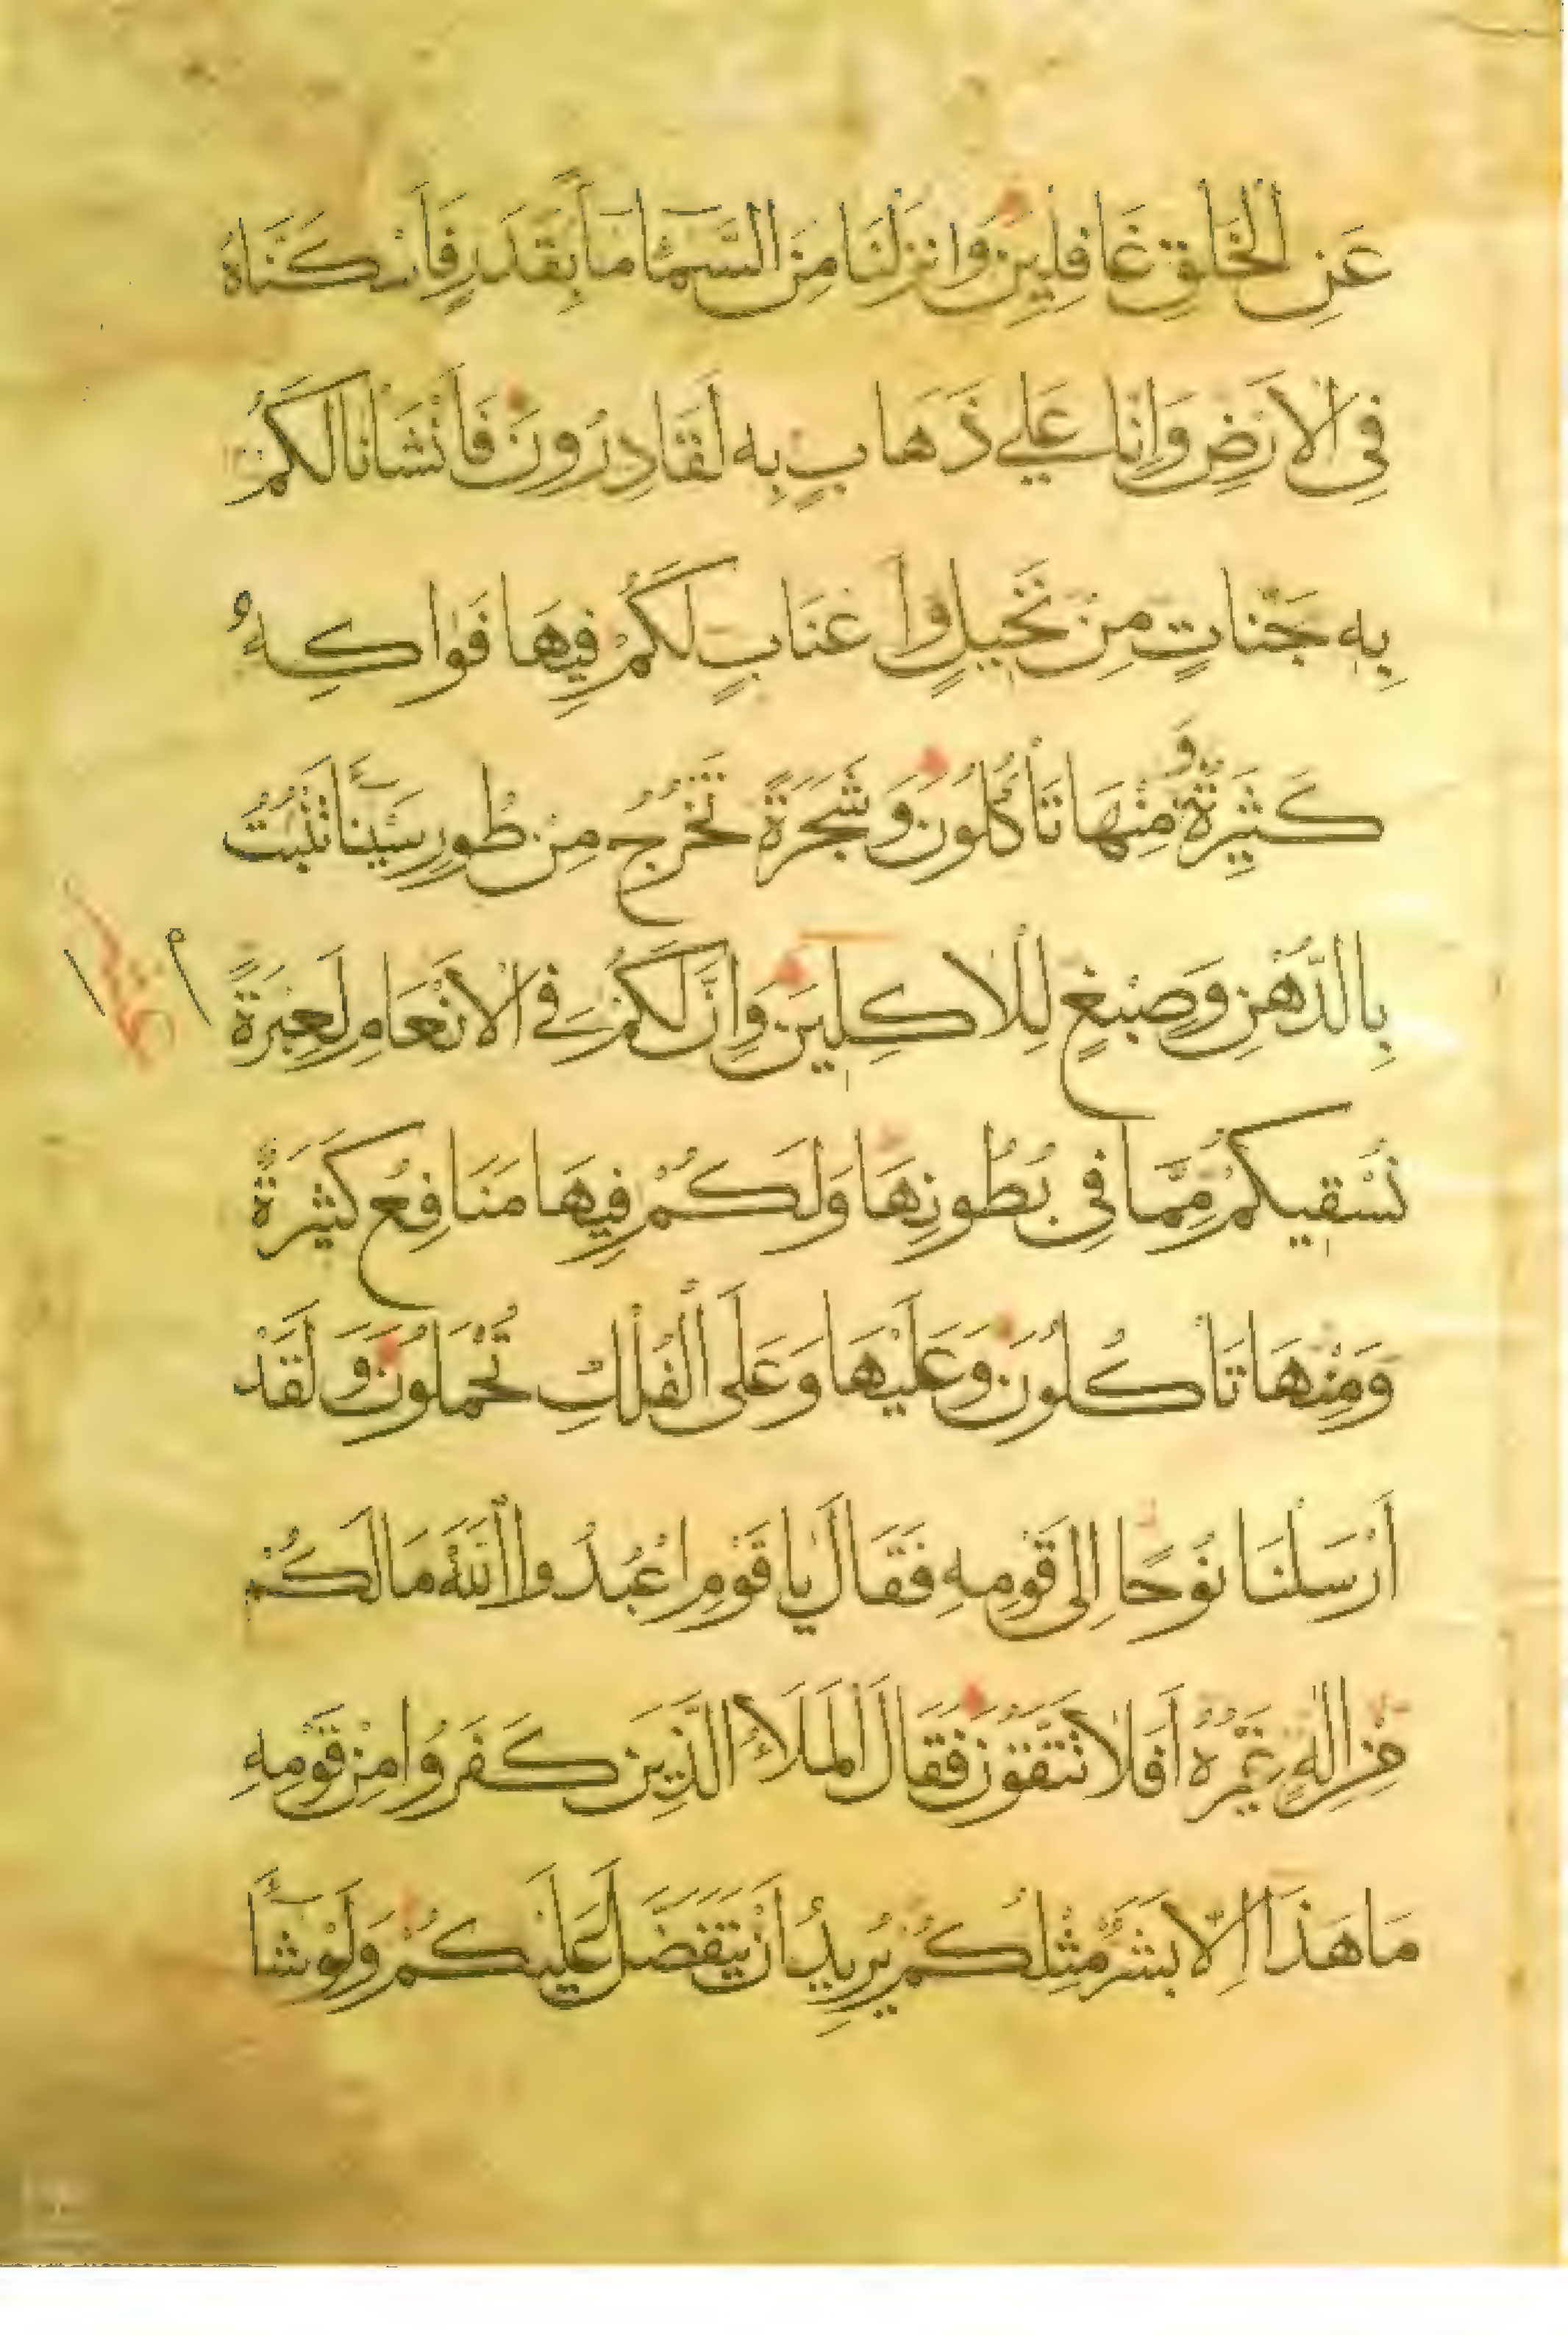 عَنِ الْخَلْقِ غَافِلِينَ وَاَنْزَلْنَا مِنَ السَّمَاۤ مَاۤءً بِقَدَرٍ فَاَسْكَنَّاهُ
فِى الْاَرْضِ وَاِنَّا عَلٰى ذَهَابٍ بِهِ لَقَادِرُونَ فَاَنْشَاْنَا لَكُمْ
بِهِ جَنَّاتٍ مِنْ نَخِيلٍ وَاَعْنَابٍ لَكُمْ فِيهَا فَوَاكِهُ
كَثِيرَةٌ وَ مِنْهَا تَاْكُلُونَ وَشَجَرَةً تَخْرُجُ مِنْ طُورِ سَيْنَاۤءَ تَنْبُتُ
بِالدُّهْنِ وَصِبْغٍ لِلْاٰكِلِينَ وَاِنَّ لَكُمْ فِى الْاَنْعَامِ لَعِبْرَةً
نُسْقِيكُمْ مِمَّا فِى بُطُونِهَا وَلَكُمْ فِيهَا مَنَافِعُ كَثِيرَةٌ
وَمِنْهَا تَاْكُلُونَ وَعَلَيْهَا وَعَلَى الْفُلْكِ تُحْمَلُونَ وَلَقَدْ
اَرْسَلْنَا نُوحًا اِلٰى قَوْمِهِ فَقَالَ يَا قَوْمِ اعْبُدُوا اللّٰهَ مَا لَكُمْ
مِنْ اِلٰهٍ غَيْرُهُ اَفَلَا تَتَّقُونَ فَقَالَ الْمَلَاُ الَّذِينَ كَفَرُوا مِنْ قَوْمِهِ
مَا هٰذَا اِلَّا بَشَرٌ مِثْلُكُمْ يُرِيدُ اَنْ يَتَفَضَّلَ عَلَيْكُمْ وَلَوْ شَاۤءَ